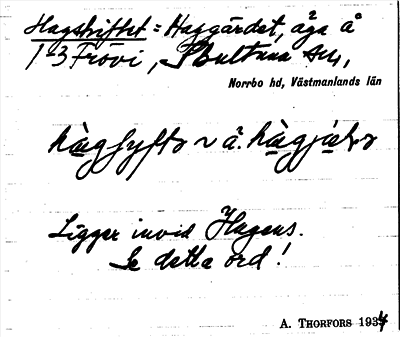 Hagskiftet = Haggärdet, äga å
1-3 Frövi, Skultuna sn,
Norrbo hd, Västmanlands län
Ligger invid Hagens.
Se detta ord!
A. THORFORS 1934